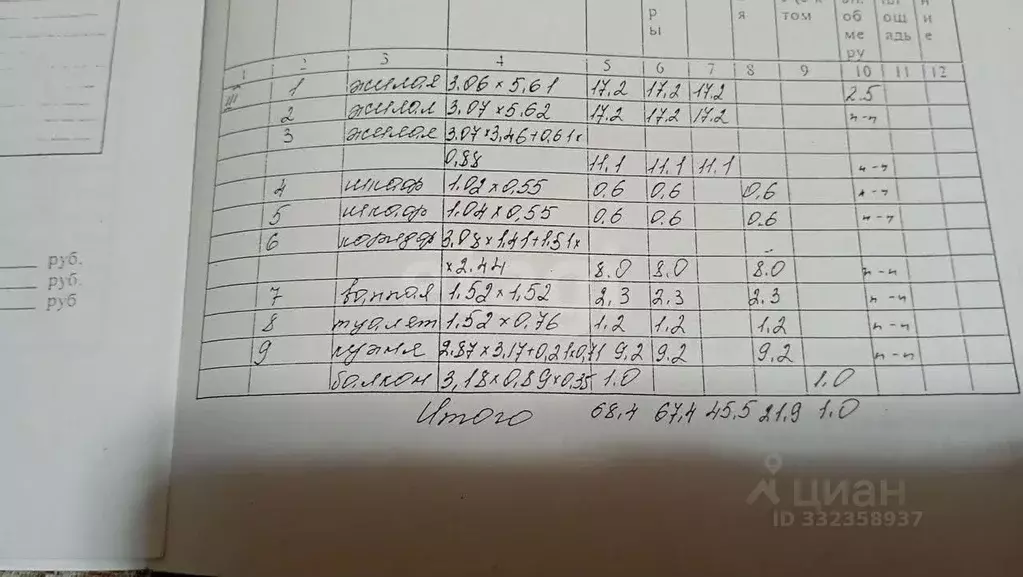 р
ы
я
том
об
ме
ру
ощ
адь
и
е
1 2 3 4 5 6 7 8 9 10 11 12
III 1 жилая 3.06 × 5.61 17.2 17.2 17.2 2.5
2 жилая 3.07 × 5.62 17.2 17.2 17.2 "-"
3 жилая 3.07×3.46+0.61×
0.88 11.1 11.1 11.1 "-"
4 шкаф 1.02 × 0.55 0.6 0.6 0.6 "-"
5 шкаф 1.04 × 0.55 0.6 0.6 0.6 "-"
6 коридор 3.08×1.41+1.51×
×2.44 8.0 8.0 8.0 "-"
7 ванная 1.52 × 1.52 2.3 2.3 2.3 "-"
8 туалет 1.52 × 0.76 1.2 1.2 1.2 "-"
9 кухня 2.87×3.17+0.21×0.71 9.2 9.2 9.2 "-"
балкон 3.18×0.89×0.35 1.0 1.0
Итого 68.4 67.4 45.5 21.9 1.0
руб.
руб.
руб
циан
ID 332358937